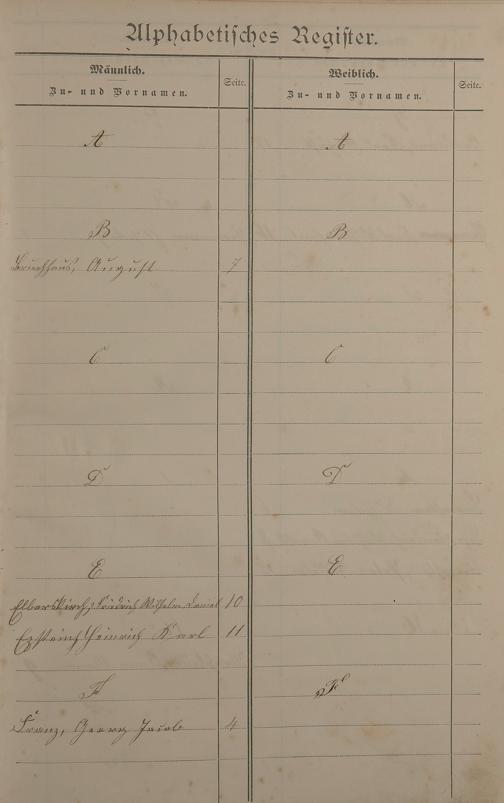 Alphabetisches Register.
Männlich.
Zu- und Vornamen.
Seite.
Weiblich.
Zu- und Vornamen.
Seite.
A
A
B
B
August 7
C
C
D
D
E
E
Elberskirch, Friedrich Wilhelm Daniel 10
Heinrich Karl 11
F
F
Franz, Georg Jacob 4